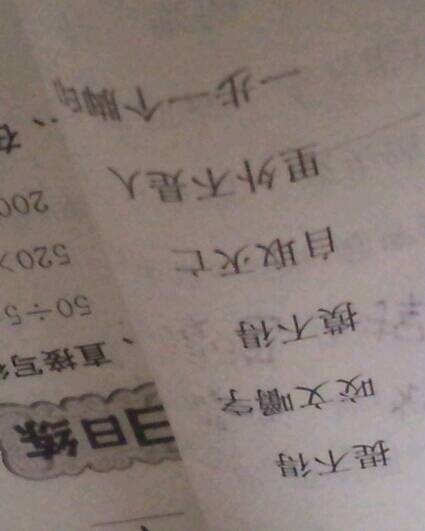 提不得
咬文嚼字
摸不得
自取灭亡
里外不是人
一步一个脚印
日练
、直接写